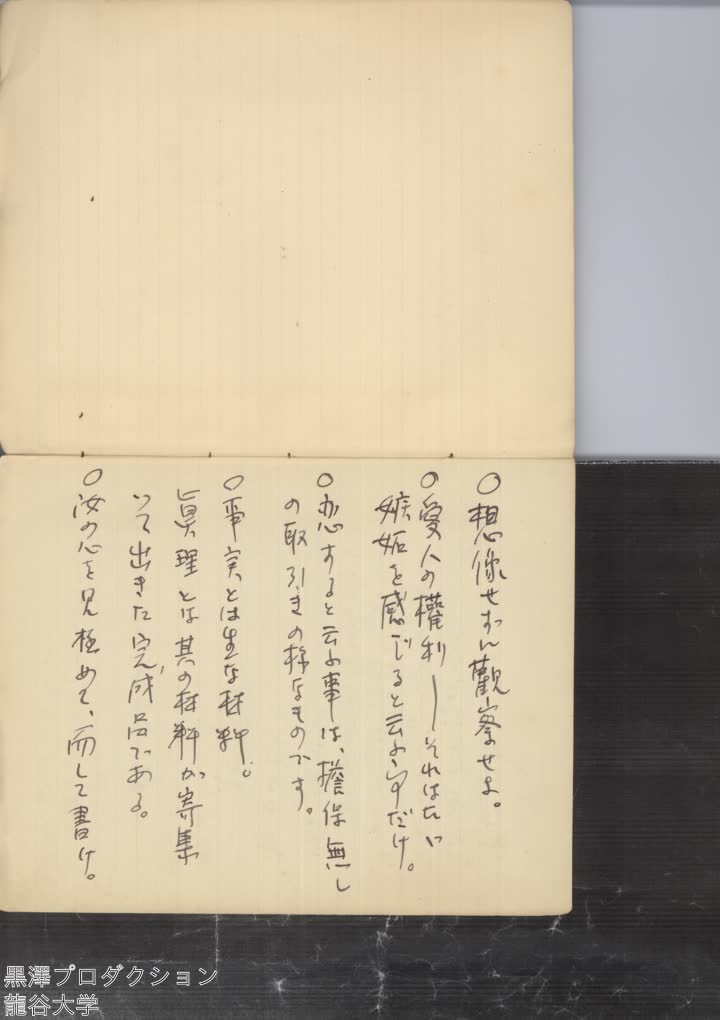 ○想像せずに觀察せよ。
○愛人の權利――それはたゞ
嫉妬を感じると云ふ事だけ。
○恋すると云ふ事は、擔保無し
の取引きの様なものです。
○事実とは生な材料。
眞理とは其の材料が寄集
いて出きた完成品である。
○汝の心を見極めて、而して書け。
黒澤プロダクション
龍谷大学